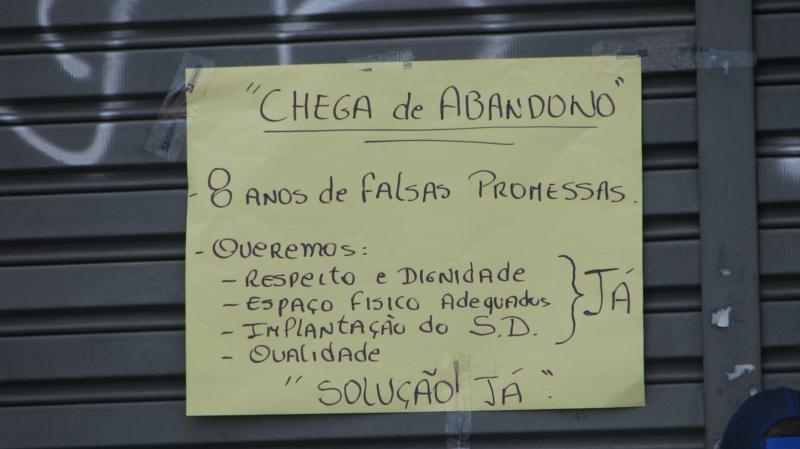 "CHEGA de ABANDONO"
- 8 ANOS de FALSAS PROMESSAS.
- QUEREMOS:
- RESPEITO e DIGNIDADE
- ESPAÇO FISICO AdequADOS
- IMPLANTAÇÃO do S.D.
- QUALIDADE
JÁ
" SOLUÇÃO JÁ "